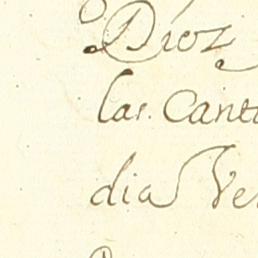 Dioz
las. Cant
dia Ve